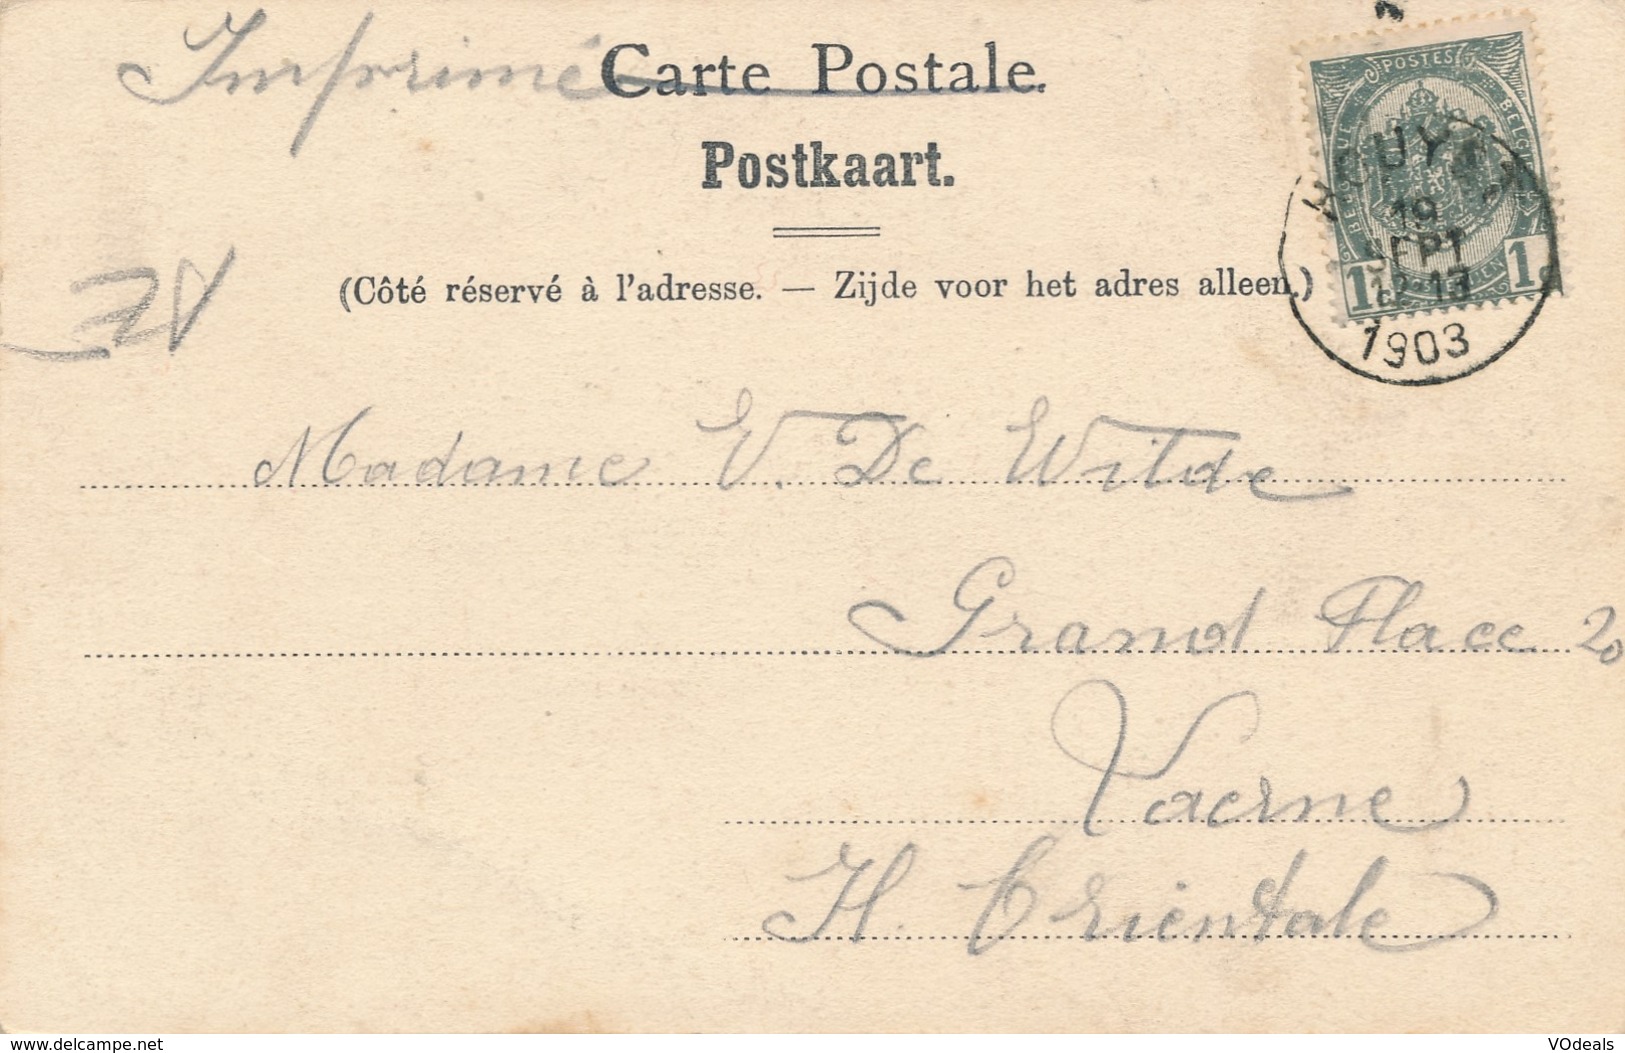 Imprimé
Carte Postale.
Postkaart.
(Côté réservé à l'adresse. — Zijde voor het adres alleen.)
POSTES
BELGIQUE
BELGIE
1 1
19
SEPT
12-13
1903
Madame V. De Wilde
Grand Place 20
Vaerne
H. Orientale
delcampe.net
VOdeals